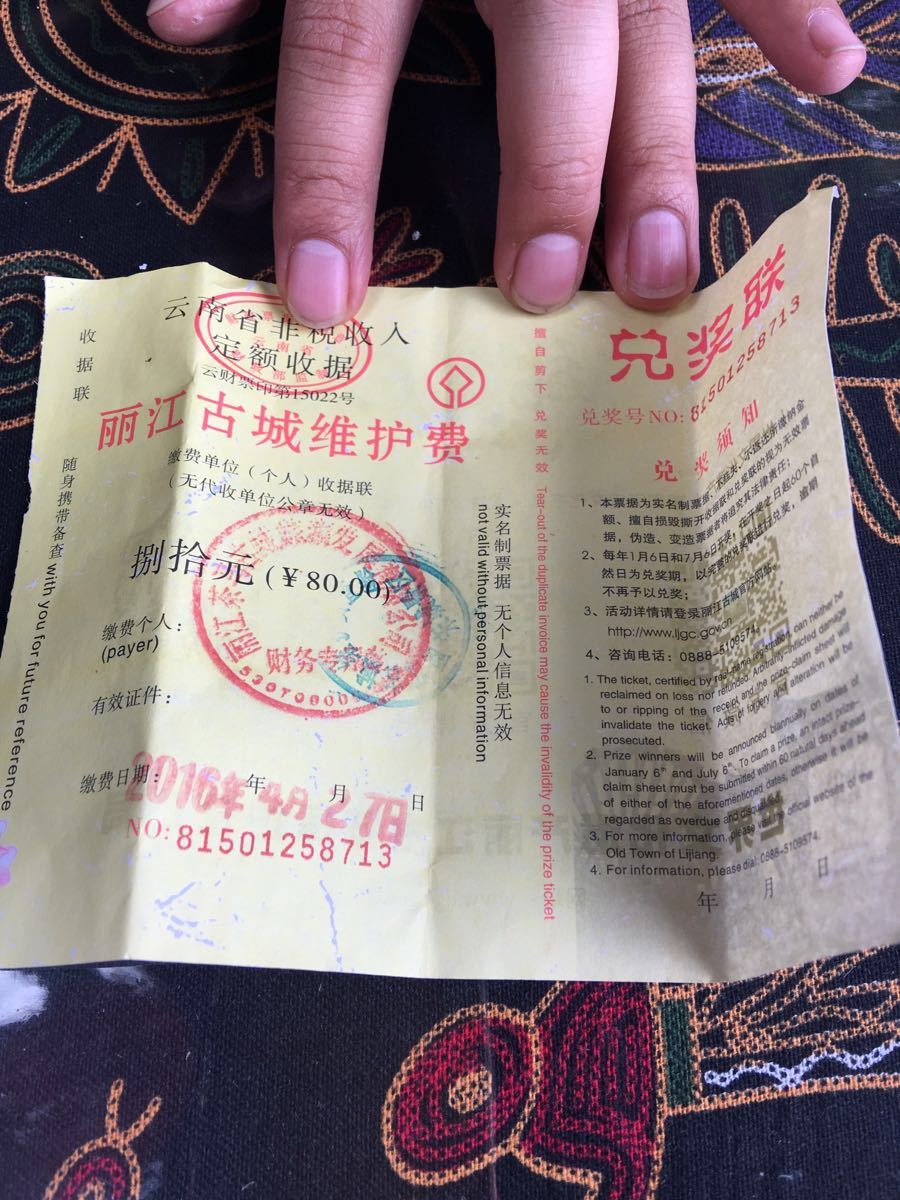 收据联
随身携带备查 with you for future reference
云南省非税收入
定额收据
云财票印第15022号
丽江古城维护费
缴费单位（个人）收据联
（无代收单位公章无效）
捌拾元 (￥80.00)
缴费个人：
(payer)
有效证件：
缴费日期： 年 月 日
2016年4月27日
NO: 81501258713
财务专
实名制票据 无个人信息无效
not valid without personal information
擅自剪下 兑奖无效 Tear-out of the duplicate invoice may cause the invalidity of the prize ticket
兑奖联
兑奖号NO: 81501258713
兑奖须知
1、本票据为实名制票据，不挂失、不返还所缴纳金
额，擅自损毁撕开收据联和兑奖联的视为无效票
据，伪造、变造票据者将追究其法律责任；
2、每年1月6日和7月6日开奖，在开奖之日起60个自
然日为兑奖期，以完整的兑奖联进行兑奖，逾期
不再予以兑奖；
3、活动详情请登录丽江古城官方网站。
http://www.ljgc.gov.cn
4、咨询电话：0888-5109574。
1. The ticket, certified by real-name registration, can neither be
reclaimed on loss nor refunded. Arbitrarily-inflicted damage
to or ripping of the receipt and the prize-claim sheet will
invalidate the ticket. Acts of forgery and alteration will be
prosecuted.
2. Prize winners will be announced biannually on dates of
January 6th and July 6th. To claim a prize, an intact prize-
claim sheet must be submitted within 60 natural days ahead
of either of the aforementioned dates, otherwise it will be
regarded as overdue and disqualified.
3. For more information, please visit the official website of the
Old Town of Lijiang.
4. For information, please dial: 0888-5109574.
年 月 日